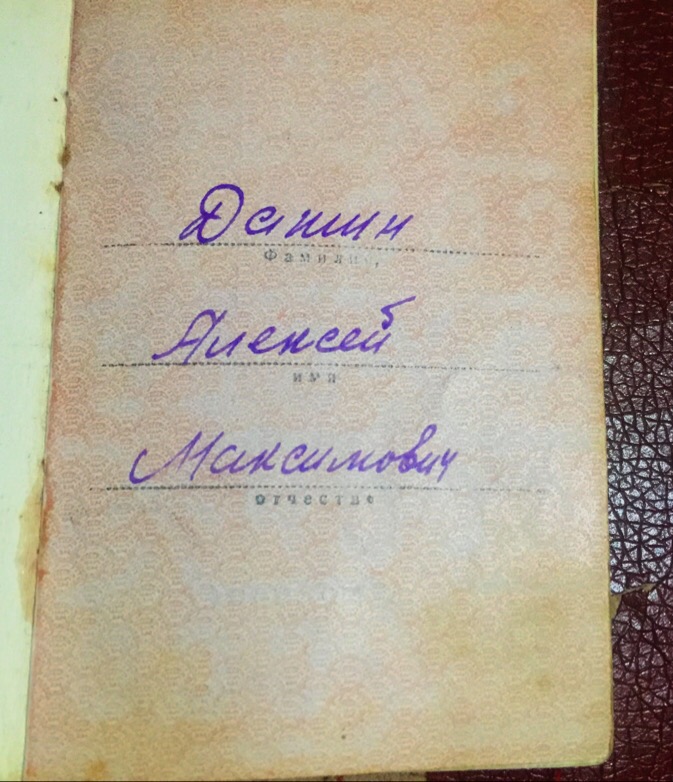 Данин
Фамилия,
Алексей
имя
Максимович
отчество